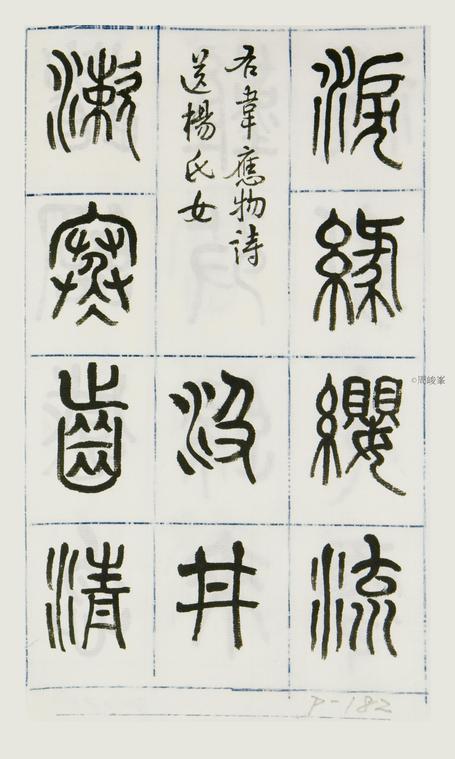 淚緣纓流
右韋應物詩
送楊氏女
汲井
漱寒齒清
©周峻峯
P-182